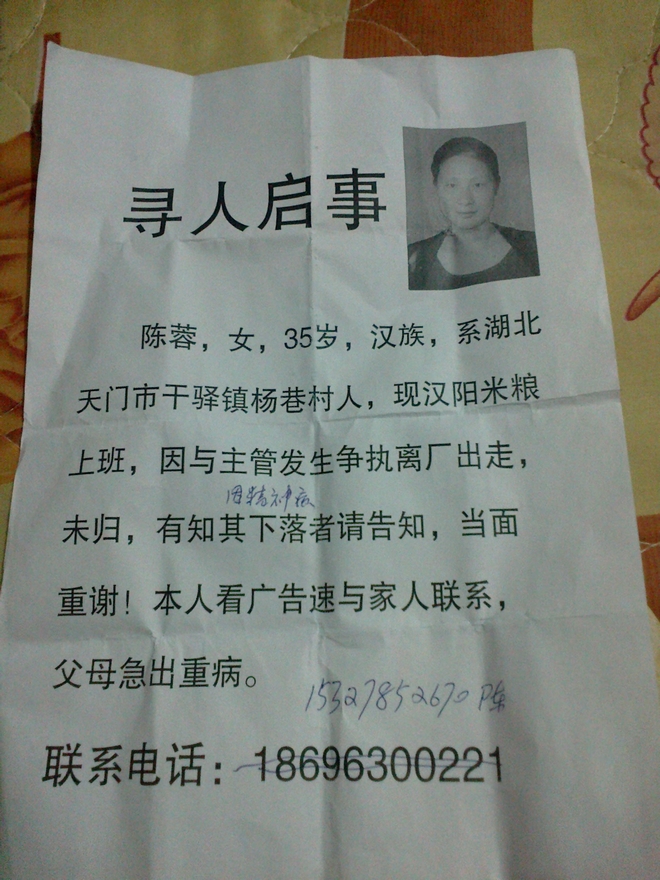 寻人启事
陈蓉，女，35岁，汉族，系湖北
天门市干驿镇杨巷村人，现汉阳米粮
上班，因与主管发生争执离厂出走，
因精神病
未归，有知其下落者请告知，当面
重谢！本人看广告速与家人联系，
父母急出重病。
15327852670 陈
联系电话：18696300221